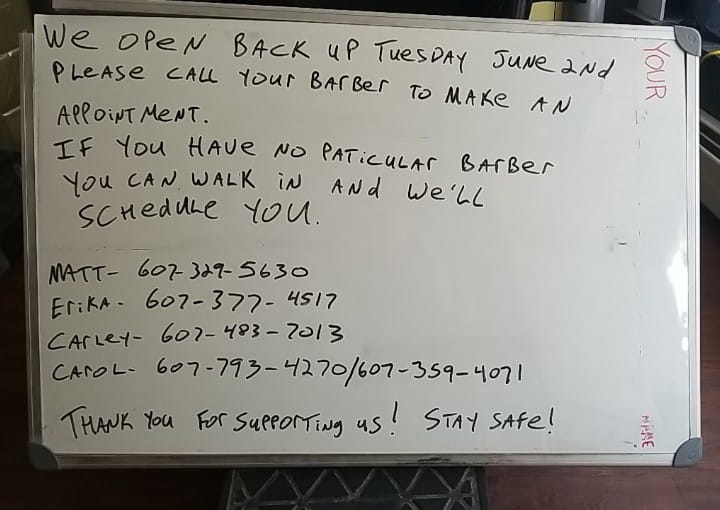 WE OPEN BACK UP TUESDAY JUNE 2Nd
PLEASE CALL YOUR BARBER TO MAKE AN
APPOINTMENT.
IF YOU HAVE NO PATICULAR BARBER
YOU CAN WALK IN AND WE'LL
SCHEDULE YOU.
MATT- 607-329-5630
ERIKA- 607-377-4517
CARLEY- 607-483-7013
CAROL- 607-793-4270/607-359-4071
THANK YOU FOR SUPPORTING US! STAY SAFE!
YOUR
NAME